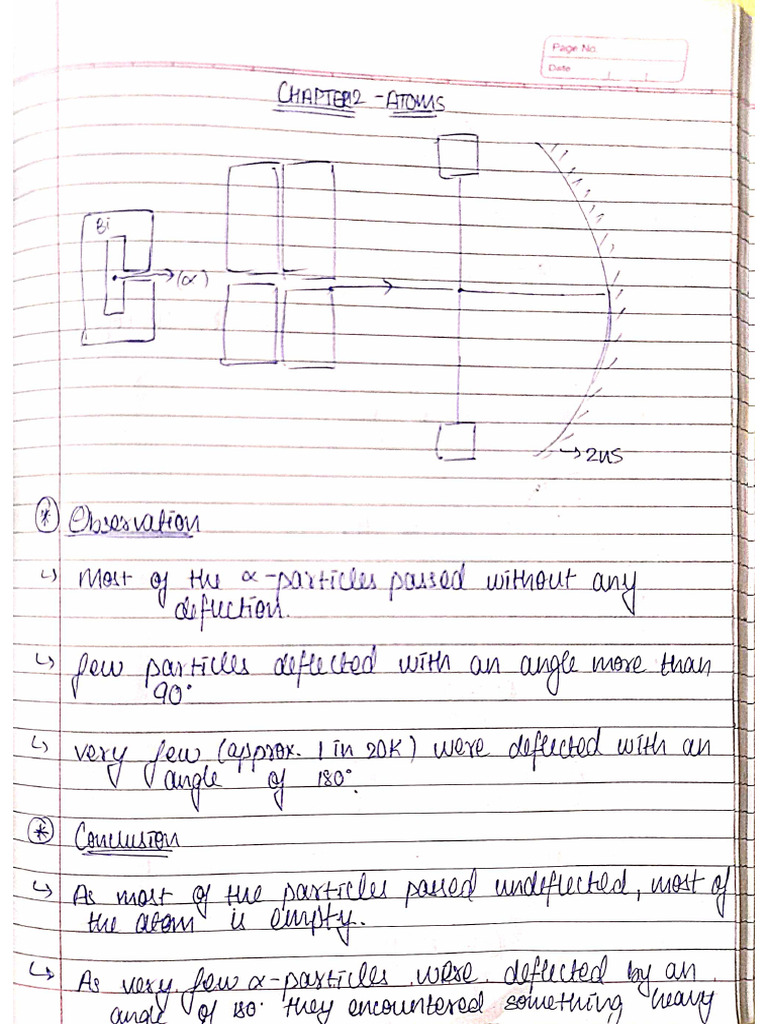 Page No.
Date
CHAPTER 12 - ATOMS
Bi
(α)
→ ZnS
* Observation
↳ Most of the α-particles passed without any
deflection.
↳ few particles deflected with an angle more than
90°
↳ very few (approx. 1 in 20K) were deflected with an
angle of 180°.
* Conclusion
↳ As most of the particles passed undeflected, most of
the atom is empty.
↳ As very few α-particles were deflected by an
angle of 180° they encountered something heavy